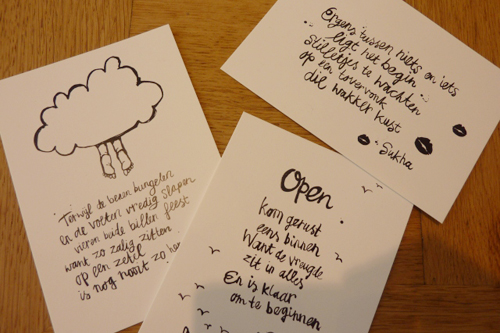 Terwijl de benen bungelen
en de voeten vredig slapen
vieren beide billen feest
want zo zalig zitten
op een zetel
is nog nooit zo
Ergens tussen niets en iets
ligt het begin
stilletjes te wachten
op een tovervonk
die wakker kust
Sukha
Open
kom gerust
eens binnen
Want de vreugde
zit in alles
En is klaar
om te beginnen